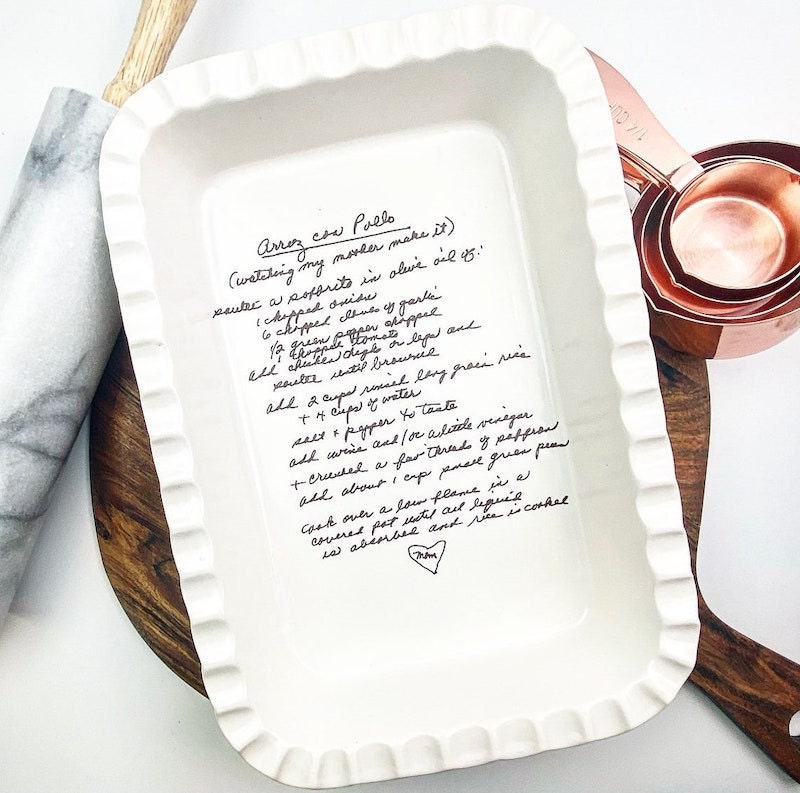 Arroz con Pollo
(watching my mother make it)
sauté a soffrito in olive oil of:
1 chopped onion
6 chopped cloves of garlic
1/2 green pepper chopped
1 chopped tomato
add chicken thighs or legs and
saute until browned
add 2 cups rinsed long grain rice
+ 4 cups of water
salt + pepper to taste
add wine and/or a little vinegar
+ crushed a few threads of saffron
add about 1 cup small green peas
cook over a low flame in a
covered pot until all liquid
is absorbed and rice is cooked
Mom
1/4 CUP